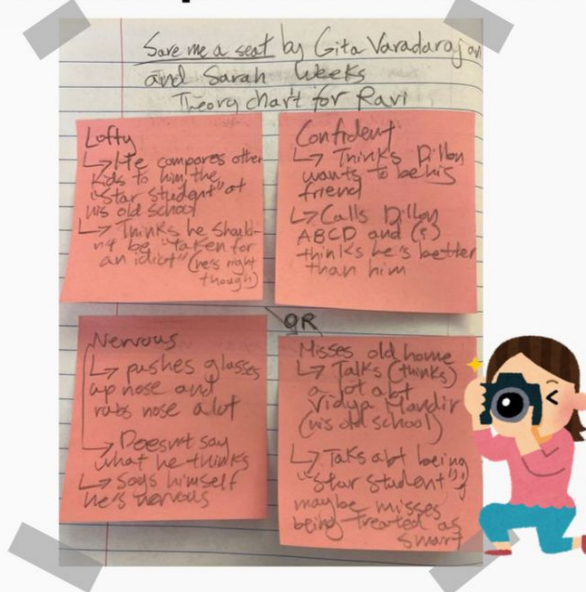 Save me a seat by Gita Varadarajan
and Sarah Weeks
Theory chart for Ravi
Lofty
↳ He compares other
kids to him, the
"star student" at
his old school
↳ Thinks he should-
n't be "taken for
an idiot" (he's right
though)
Confident
↳ Thinks Dillon
wants to be his
friend
↳ Calls Dillon
ABCD and (?)
thinks he is better
than him
OR
Nervous
↳ pushes glasses
up nose and
rubs nose a lot
↳ Doesn't say
what he thinks
↳ Says himself
he is nervous
Misses old home
↳ Talks (thinks)
a lot abt
Vidya Mandir
(his old school)
↳ Talks abt being
"star student",
maybe misses
being treated as
smart